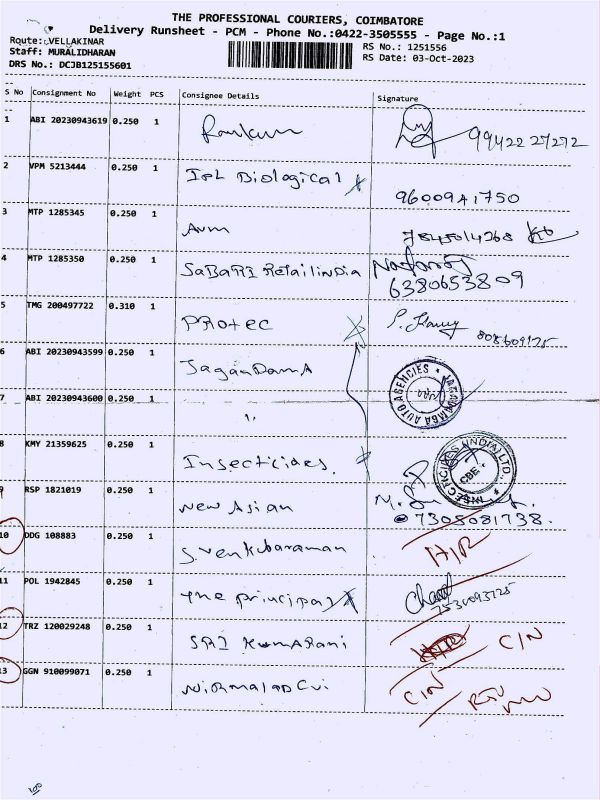 THE PROFESSIONAL COURIERS, COIMBATORE
Delivery Runsheet - PCM - Phone No.:0422-3505555 - Page No.:1
Route: VELLAKINAR
RS No.: 1251556
Staff: MURALIDHARAN
RS Date: 03-Oct-2023
DRS No.: DCJB125155601
S No Consignment No Weight PCS Consignee Details Signature
1 ABI 20230943619 0.250 1 99422 27272
2 VPM 5213444 0.250 1 IPL Biological
9600941750
3 MTP 1285345 0.250 1 Avm
4 MTP 1285350 0.250 1 SaBaRI Retail india
6380653809
5 TMG 200497722 0.310 1 PRotec
6 ABI 20230943599 0.250 1 JaganDamA
7 ABI 20230943600 0.250 1 "
JAGADAMBA AUTO AGENCIES
8 KMY 21359625 0.250 1 Insecticides
INSECTICIDES (INDIA) LTD. CBE
9 RSP 1821019 0.250 1 New Asian
7305081738.
10 DDG 108883 0.250 1 S. Venkubaraman
11 POL 1942845 0.250 1 The principal
12 TRZ 120029248 0.250 1 SRI KumaRani C/N
13 GGN 910099071 0.250 1 C/N